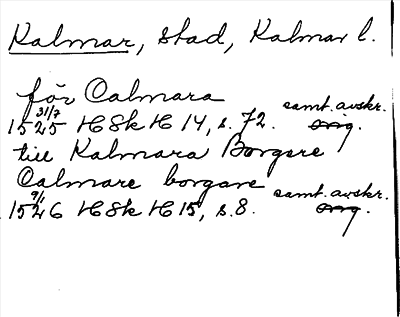 Kalmar, stad, Kalmar l.
för Calmara
1525 31/7 HSkH 14, s. 72. samt. avskr. orig.
till Kalmara Borgere
Calmare borgare
1526 9/1 HSkH 15, s. 8. samt. avskr. orig.